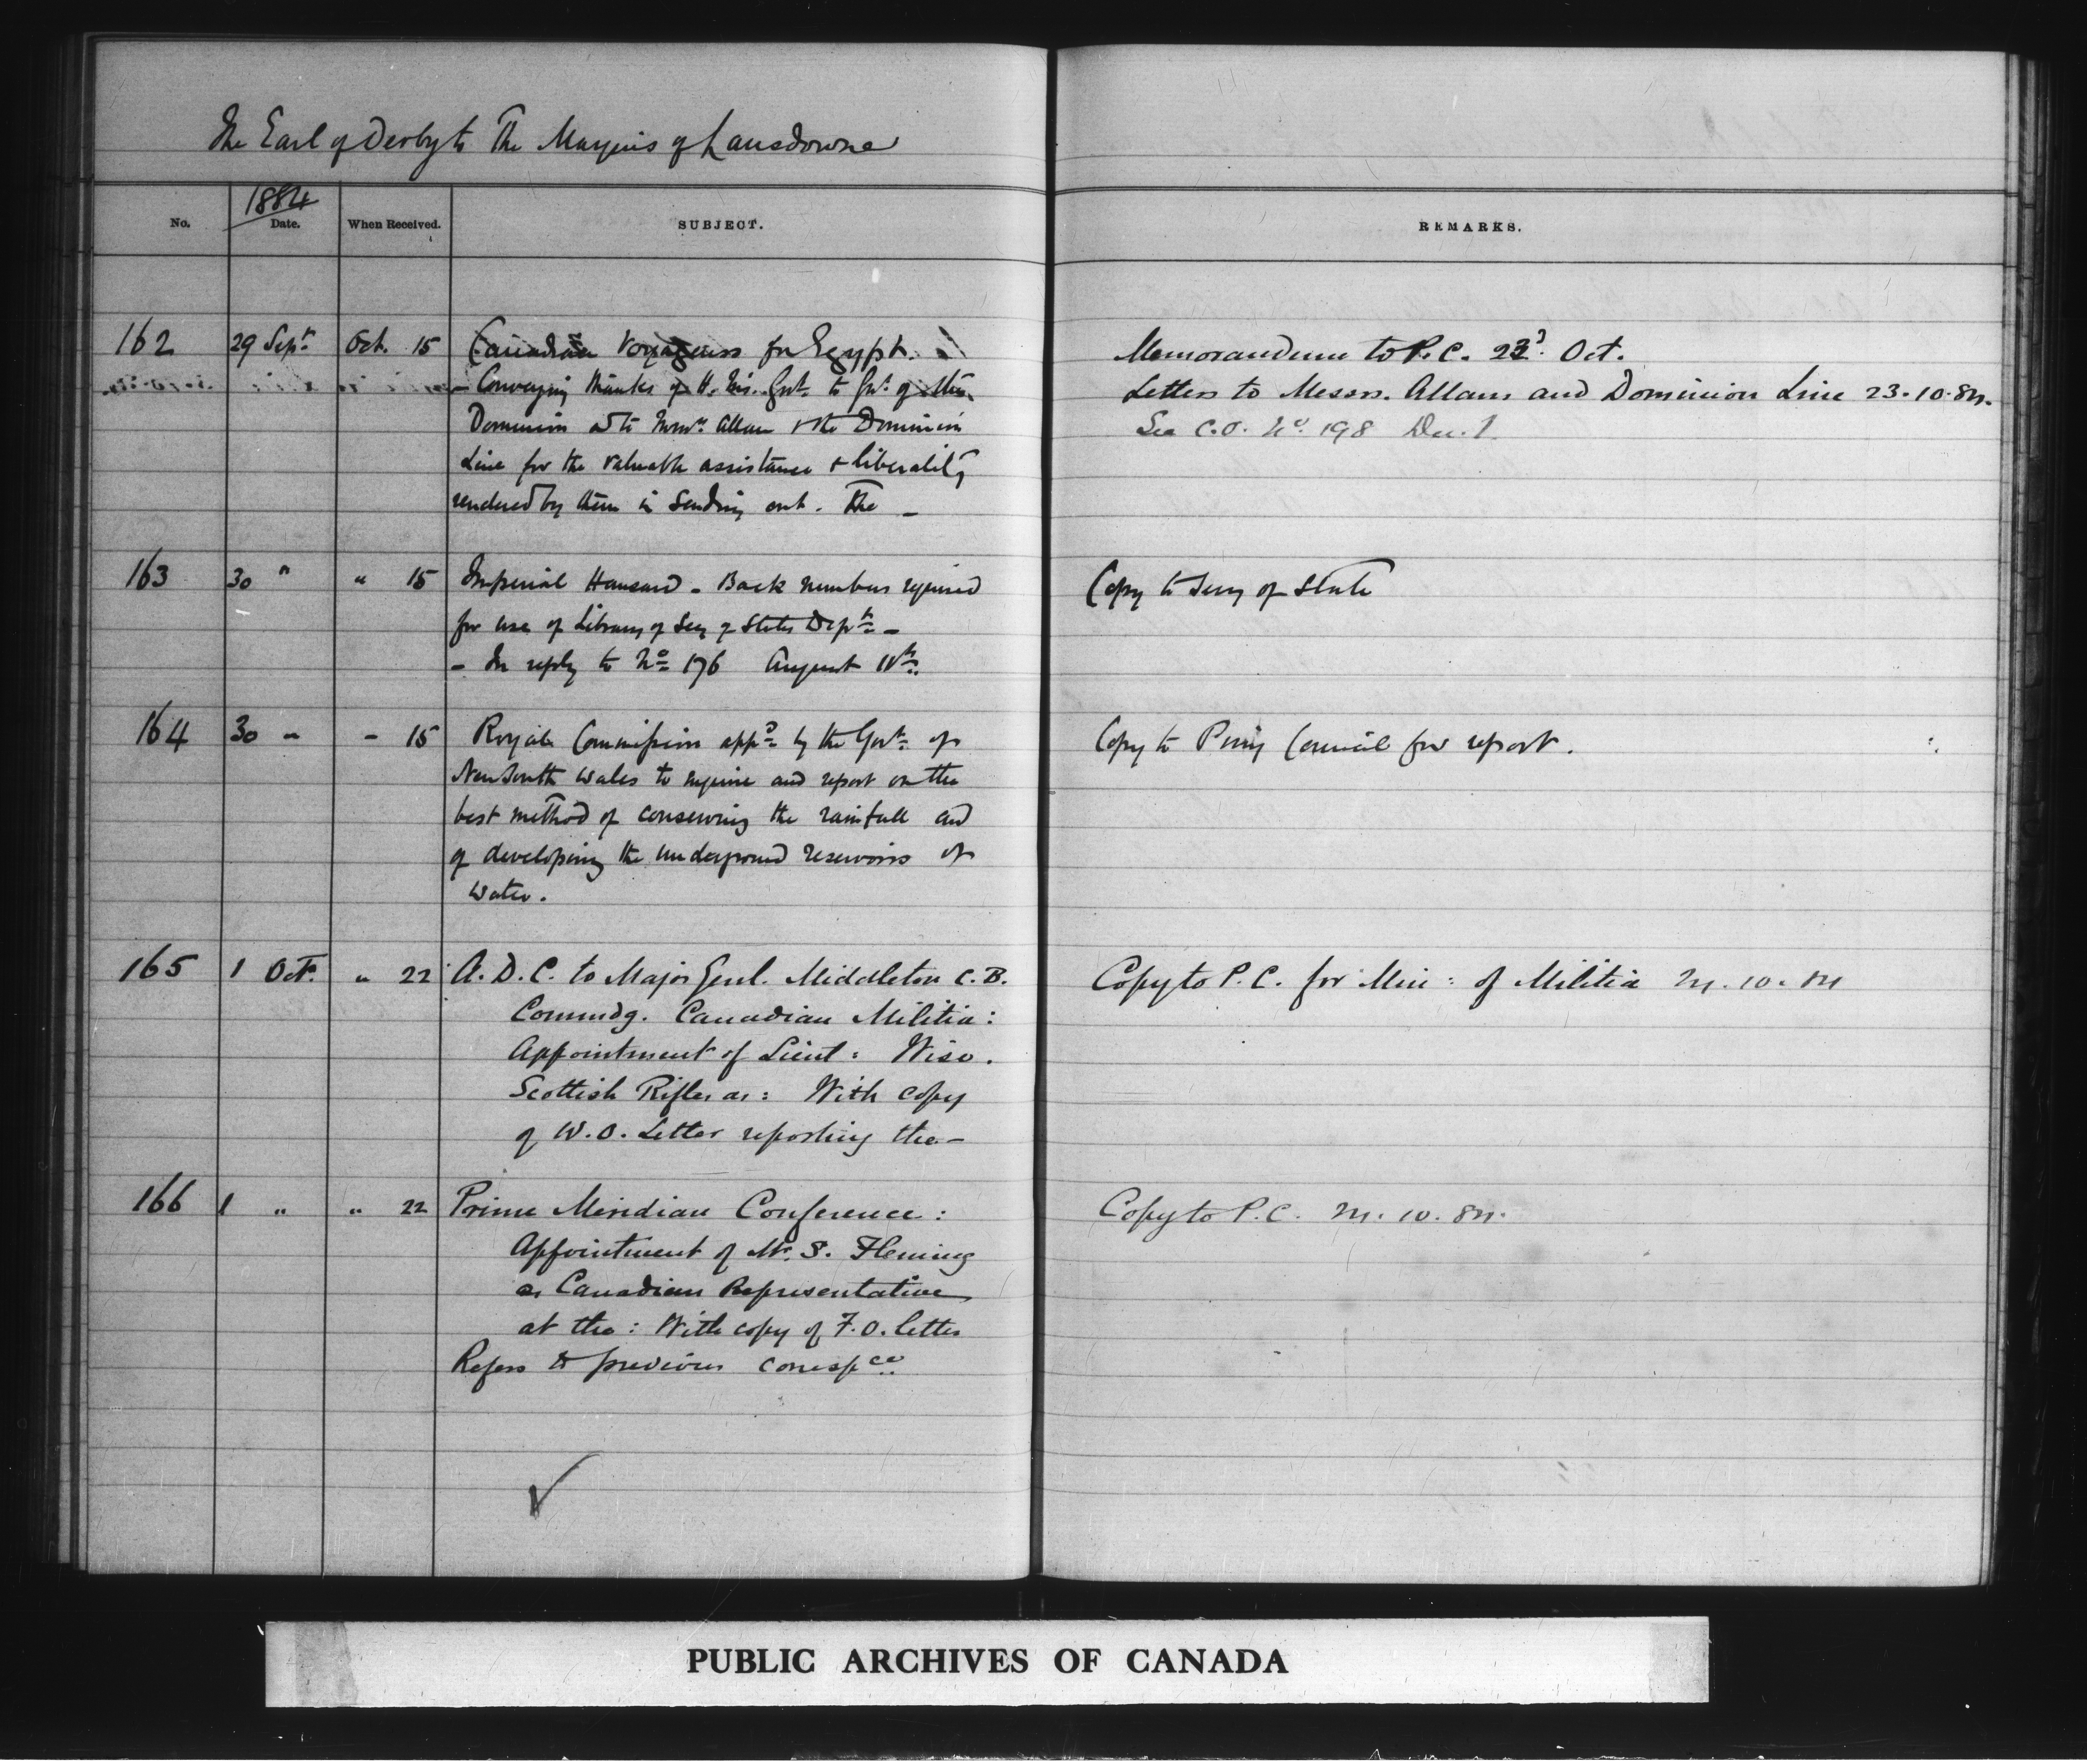 The Earl of Derby to The Marquis of Lansdowne
1884
No. Date. When Received. SUBJECT. REMARKS.
162 29 Sepr. Oct. 15 Canadian Voyageurs for Egypt.
- Conveying thanks of H. Govt. to Govt. of the
Dominion & to Messrs. Allan & the Dominion
Line for the valuable assistance & liberality
rendered by them in sending out. The -
Memorandum to P.C. 23d. Oct.
Letters to Messrs. Allans and Dominion Line 23.10.84.
See C.O. No. 198 Dec. 1.
163 30 " " 15 Imperial Hansard - Back numbers required
for use of Library of Secy of States Dept. -
- In reply to No. 176 August
Copy to Secy of State
164 30 " - 15 Royal Commission appd. by the Govt. of
New South Wales to enquire and report on the
best method of conserving the rainfall and
of developing the underground reservoirs of
water.
Copy to Privy Council for report.
165 1 Oct. " 22 A.D.C. to Major Genl. Middleton C.B.
Commdg. Canadian Militia:
Appointment of Lieut: Wise.
Scottish Rifles as: With copy
of W.O. Letter reporting the -
Copy to P.C. for Min: of Militia 24.10.84
166 1 " " 22 Prime Meridian Conference:
Appointment of Mr. S. Fleming
as Canadian Representative
at the: With copy of F.O. letter
Refers to previous correspce.
Copy to P.C. 24.10.84.
PUBLIC ARCHIVES OF CANADA